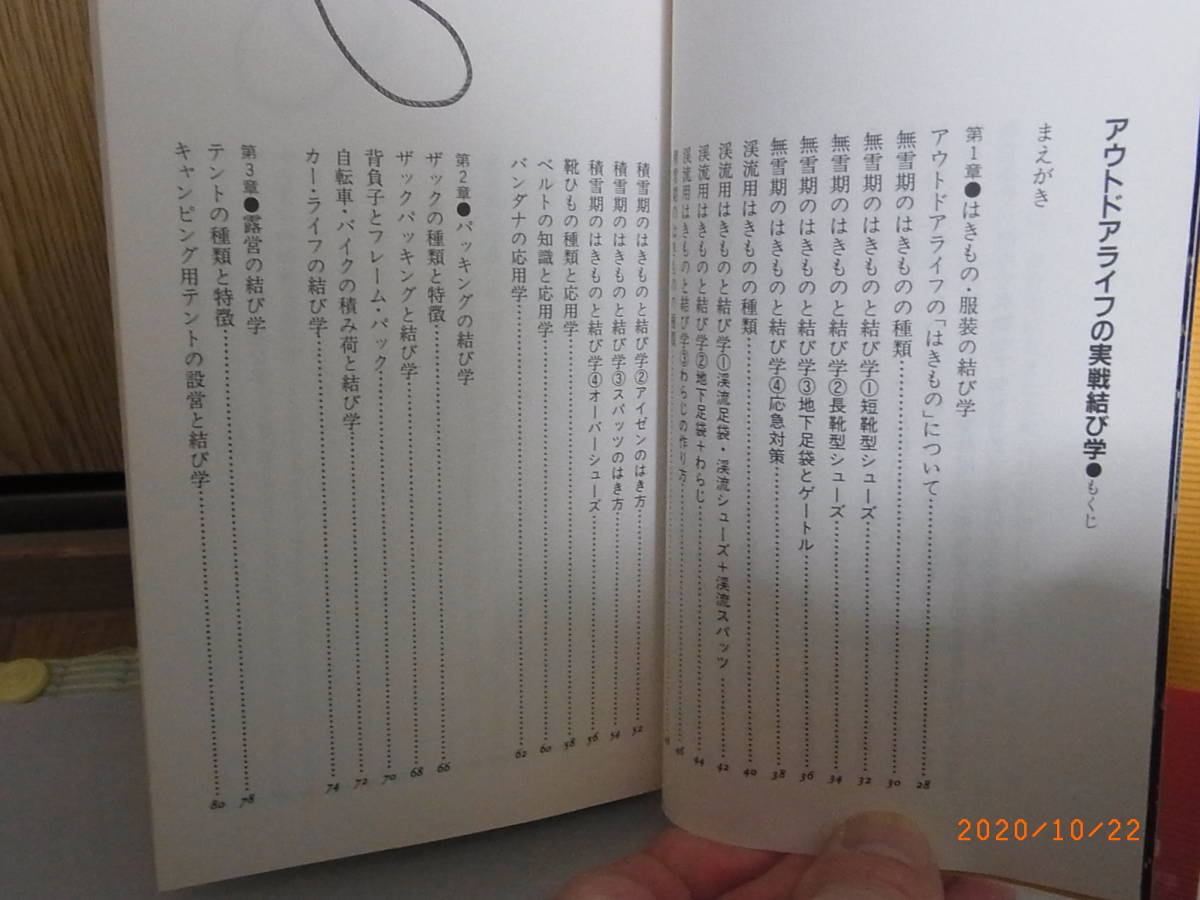 アウトドアライフの実戦結び学●もくじ
まえがき
第1章●はきもの・服装の結び学
アウトドアライフの「はきもの」について……28
無雪期のはきものの種類……30
無雪期のはきものと結び学①短靴型シューズ……32
無雪期のはきものと結び学②長靴型シューズ……34
無雪期のはきものと結び学③地下足袋とゲートル……36
無雪期のはきものと結び学④応急対策……38
渓流用はきものの種類……40
渓流用はきものと結び学①渓流足袋・渓流シューズ+渓流スパッツ……42
渓流用はきものと結び学②地下足袋+わらじ……44
渓流用はきものと結び学③わらじの作り方……46
積雪期のはきものと結び学②アイゼンのはき方……52
積雪期のはきものと結び学③スパッツのはき方……54
積雪期のはきものと結び学④オーバーシューズ……56
靴ひもの種類と応用学……58
ベルトの知識と応用学……60
バンダナの応用学……62
第2章●パッキングの結び学
ザックの種類と特徴……66
ザックパッキングと結び学……68
背負子とフレーム・パック……70
自転車・バイクの積み荷と結び学……72
カー・ライフの結び学……74
第3章●露営の結び学
テントの種類と特徴……78
キャンピング用テントの設営と結び学……80
2020/10/22